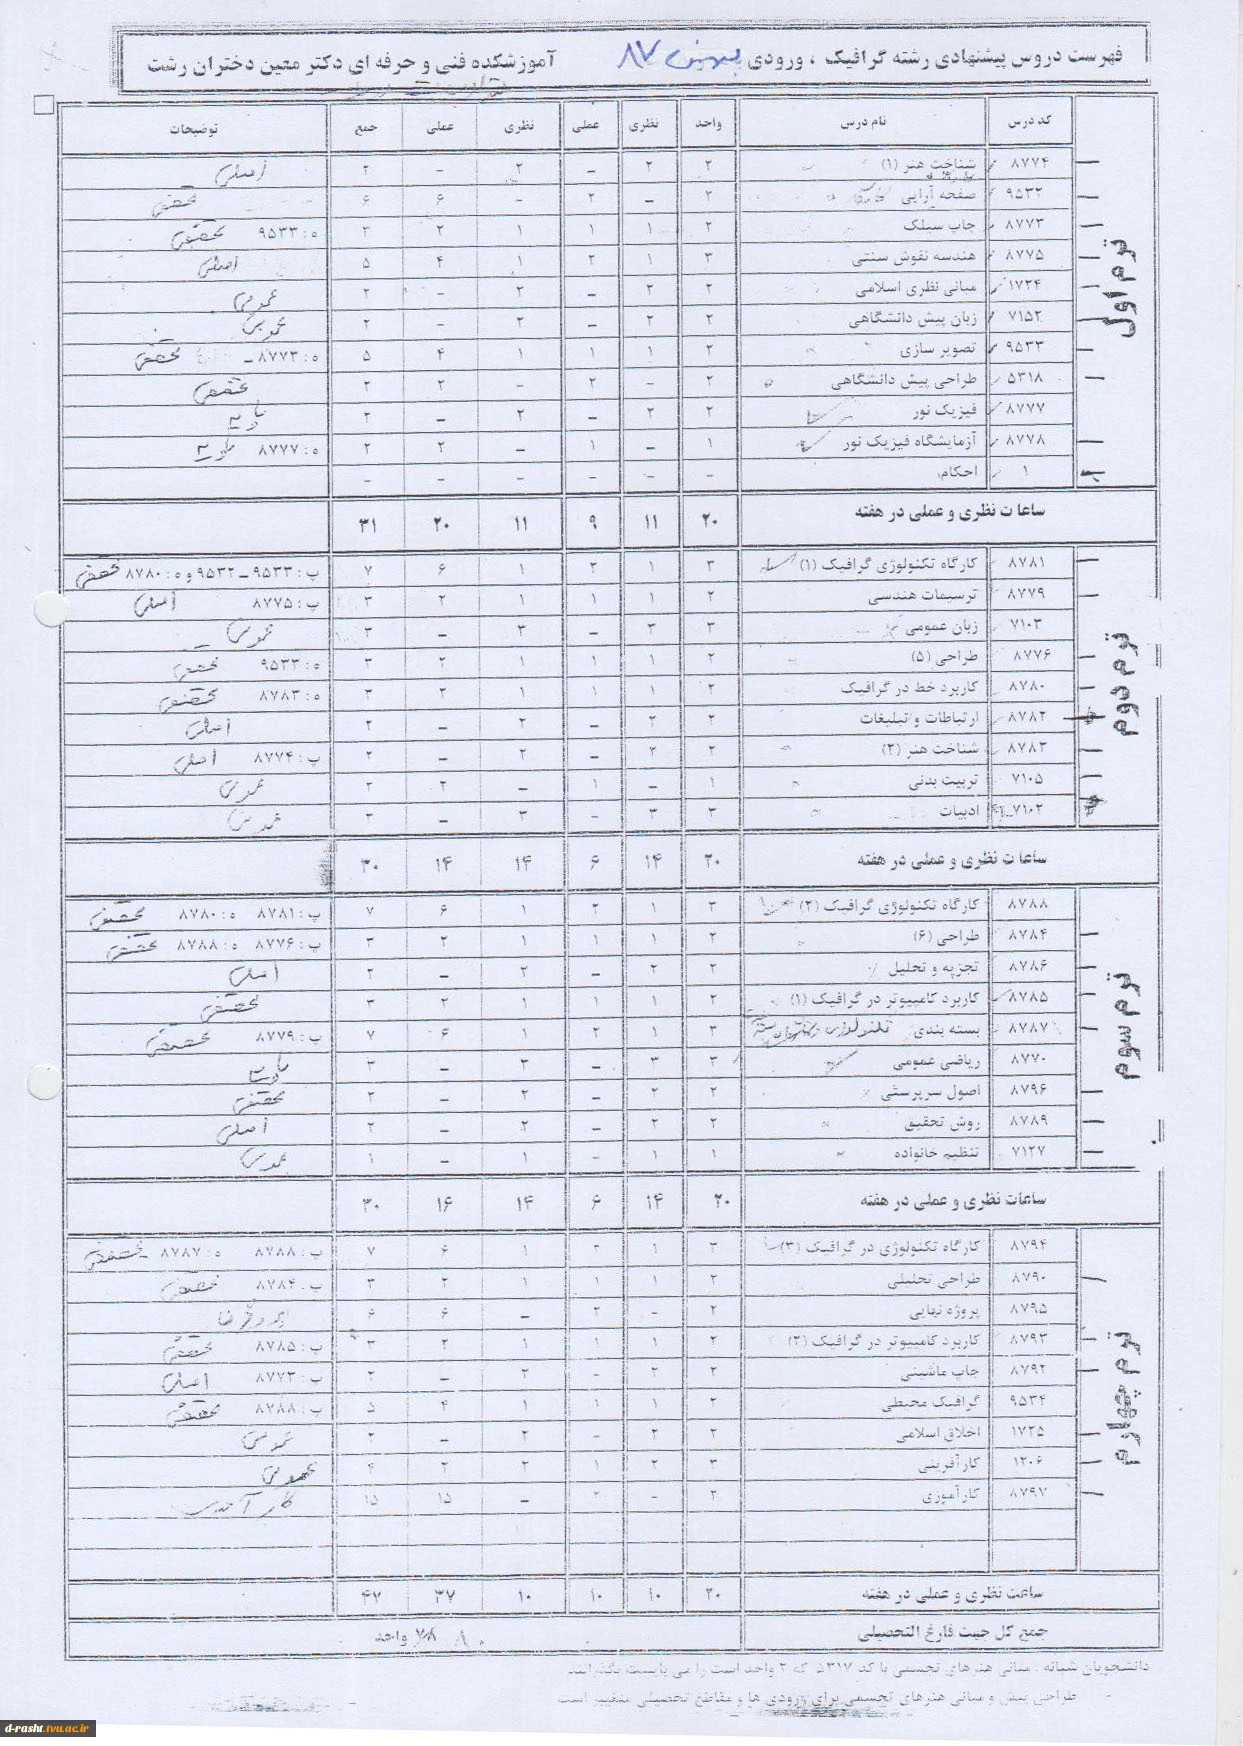 فهرست دروس پیشنهادی رشته گرافیک ، ورودی بهمن ۸۷ آموزشکده فنی و حرفه ای دکتر معین دختران رشت
کد درس نام درس واحد نظری عملی نظری عملی جمع توضیحات
ترم اول
۸۷۷۴ شناخت هنر (۱) ۲ ۲ – ۲ – ۲ اصلی
۹۵۳۲ صفحه آرایی ۲ – ۲ – ۶ ۶
۸۷۷۳ چاپ سیلک ۲ ۱ ۱ ۱ ۲ ۳ ه : ۹۵۳۳
۸۷۷۵ هندسه نقوش سنتی ۳ ۱ ۲ ۱ ۴ ۵ اصلی
۱۷۲۴ مبانی نظری اسلامی ۲ ۲ – ۲ – ۲
۷۱۵۲ زبان پیش دانشگاهی ۲ ۲ – ۲ – ۲
۹۵۳۳ تصویر سازی ۲ ۱ ۱ ۱ ۴ ۵ ه : ۸۷۷۳
۵۳۱۸ طراحی پیش دانشگاهی ۲ – ۲ – ۲ ۲
۸۷۷۷ فیزیک نور ۲ ۲ – ۲ – ۲ پایه
۸۷۷۸ آزمایشگاه فیزیک نور ۱ – ۱ – ۲ ۲ ه : ۸۷۷۷ پایه
۱ احکام – – – – – –
ساعات نظری و عملی در هفته ۲۰ ۱۱ ۹ ۱۱ ۲۰ ۳۱
ترم دوم
۸۷۸۱ کارگاه تکنولوژی گرافیک (۱) ۳ ۱ ۲ ۱ ۶ ۷ پ : ۹۵۳۳ – ۹۵۳۲ و ه : ۸۷۸۰
۸۷۷۹ ترسیمات هندسی ۲ ۱ ۱ ۱ ۲ ۳ پ : ۸۷۷۵ اصلی
۷۱۰۳ زبان عمومی ۳ ۳ – ۳ – ۳
۸۷۷۶ طراحی (۵) ۲ ۱ ۱ ۱ ۲ ۳ ه : ۹۵۳۳
۸۷۸۰ کاربرد خط در گرافیک ۲ ۱ ۱ ۱ ۲ ۳ ه : ۸۷۸۳
۸۷۸۲ ارتباطات و تبلیغات ۲ ۲ – ۲ – ۲ اصلی
۸۷۸۳ شناخت هنر (۲) ۲ ۲ – ۲ – ۲ پ : ۸۷۷۴ اصلی
۷۱۰۵ تربیت بدنی ۱ – ۱ – ۲ ۲
۷۱۰۲ ادبیات ۳ ۳ – ۳ – ۳
ساعات نظری و عملی در هفته ۲۰ ۱۴ ۶ ۱۴ ۱۴ ۳۰
ترم سوم
۸۷۸۸ کارگاه تکنولوژی گرافیک (۲) ۳ ۱ ۲ ۱ ۶ ۷ پ : ۸۷۸۱ ه : ۸۷۸۰
۸۷۸۴ طراحی (۶) ۲ ۱ ۱ ۱ ۲ ۳ پ : ۸۷۷۶ ه : ۸۷۸۸
۸۷۸۶ تجزیه و تحلیل ۲ ۲ – ۲ – ۲ اصلی
۸۷۸۵ کاربرد کامپیوتر در گرافیک (۱) ۲ ۱ ۱ ۱ ۲ ۳
۸۷۸۷ بسته بندی ۳ ۱ ۲ ۱ ۶ ۷ پ : ۸۷۷۹
۸۷۷۰ ریاضی عمومی ۳ ۳ – ۳ – ۳ پایه
۸۷۹۶ اصول سرپرستی ۲ ۲ – ۲ – ۲
۸۷۸۹ روش تحقیق ۲ ۲ – ۲ – ۲ اصلی
۷۱۲۷ تنظیم خانواده ۱ ۱ – ۱ – ۱
ساعات نظری و عملی در هفته ۲۰ ۱۴ ۶ ۱۴ ۱۶ ۳۰
ترم چهارم
۸۷۹۴ کارگاه تکنولوژی در گرافیک (۳) ۳ ۱ ۲ ۱ ۶ ۷ پ : ۸۷۸۸ ه : ۸۷۸۷
۸۷۹۰ طراحی تحلیلی ۲ ۱ ۱ ۱ ۲ ۳ پ . ۸۷۸۴
۸۷۹۵ پروژه نهایی ۲ – ۲ – ۶ ۶
۸۷۹۳ کاربرد کامپیوتر در گرافیک (۲) ۲ ۱ ۱ ۱ ۲ ۳ پ : ۸۷۸۵
۸۷۹۲ چاپ ماشینی ۲ ۲ – ۲ – ۲ پ : ۸۷۷۳ اصلی
۹۵۳۴ گرافیک محیطی ۲ ۱ ۱ ۱ ۴ ۵ پ : ۸۷۸۸
۱۷۲۵ اخلاق اسلامی ۲ ۲ – ۲ – ۲
۱۲۰۶ کارآفرینی ۳ ۲ ۱ ۲ ۲ ۴
۸۷۹۷ کارآموزی ۲ – ۲ – ۱۵ ۱۵ کارآموزی
ساعت نظری و عملی در هفته ۲۰ ۱۰ ۱۰ ۱۰ ۳۷ ۴۷
جمع کل جهت فارغ التحصیلی ۸۰ واحد
دانشجویان شبانه : مبانی هنرهای تجسمی با کد ۵۳۱۷ که ۲ واحد است را می بایست بگذرانند
- طراحی پیش و مبانی هنرهای تجسمی برای ورودی ها و مقاطع تحصیلی متغییر است
d-rasht.tvu.ac.ir